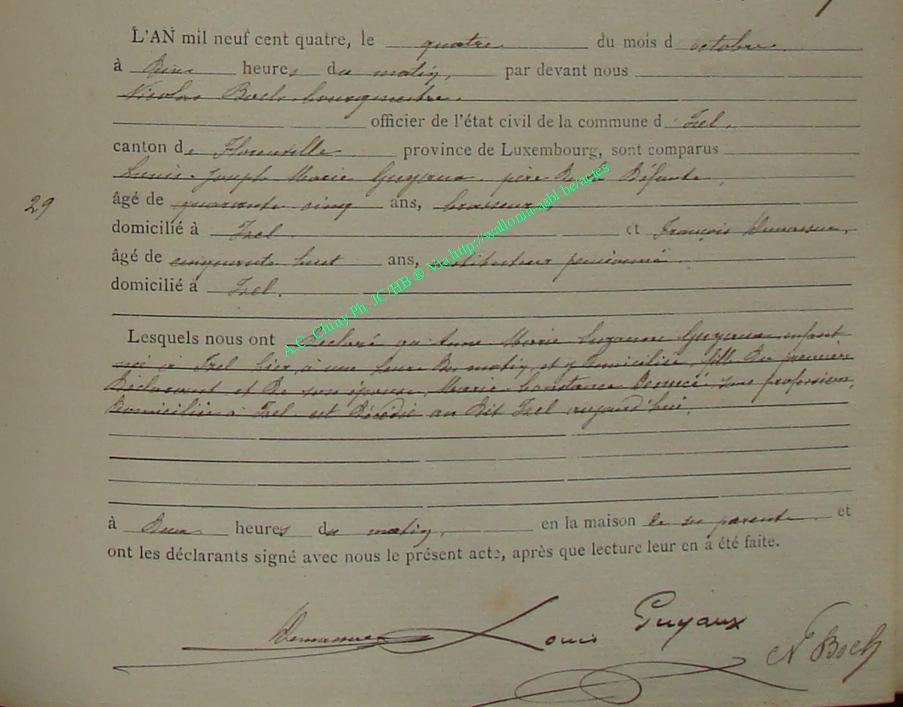 L'AN mil neuf cent quatre, le quatre du mois d octobre
à heures du matin, par devant nous
Nicolas Boch, bourgmestre,
officier de l'état civil de la commune d Izel,
canton de Florenville province de Luxembourg, sont comparus
Louis Joseph Marie Guyaux, père de la défunte,
âgé de quarante cinq ans, brasseur,
29
domicilié à Izel et François
âgé de cinquante huit ans, instituteur pensionné
domicilié à Izel.
Lesquels nous ont déclaré qu'Anne Marie Suzanne Guyaux enfant
née à Izel hier à une heure du matin, et y domiciliée, fille du premier
déclarant et de son épouse, Marie Constance sans profession,
domiciliée à Izel est décédée au dit Izel aujourd'hui,
à deux heures du matin, en la maison de ses parents et
ont les déclarants signé avec nous le présent acte, après que lecture leur en a été faite.
Louis Guyaux
N Boch
A.C. Chiny Ph. JC/HB © Via http://wallonia-asbl.be/actes